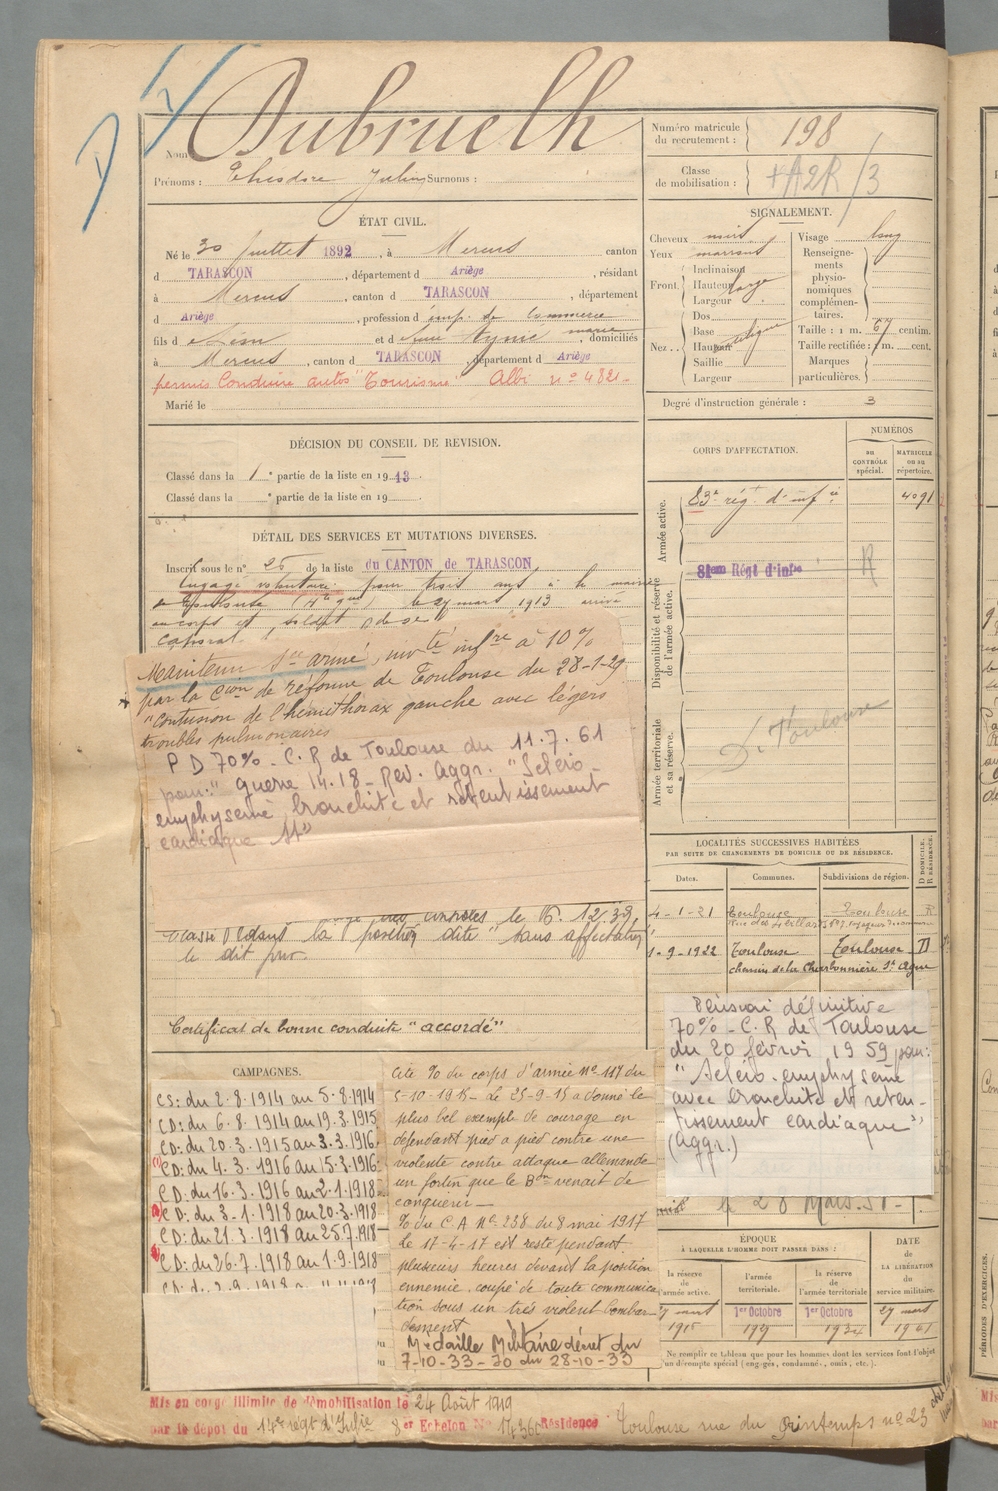 Nom Dubruelh
Prénoms : Théodore Julien Surnoms :
Numéro matricule du recrutement : 198
Classe de mobilisation : +A2R/3
ÉTAT CIVIL.
Né le 30 Juillet 1892, à Mercus canton
d TARASCON, département d Ariège, résidant
à Mercus, canton d TARASCON, département
d Ariège, profession d emp. de Commerce
fils d e Léon et d marie, domiciliés
à Mercus, canton d TARASCON, département d Ariège
permis Conduire autos "Tourisme" Albi nº 4821-
Marié le
SIGNALEMENT.
Cheveux
Yeux marrons
Front. Inclinaison
Hauteur large
Largeur
Nez. Dos
Base
Hauteur
Saillie
Largeur
Visage long
Renseignements physionomiques complémentaires.
Taille : 1 m. 67 centim.
Taille rectifiée : 1 m. cent.
Marques particulières.
Degré d'instruction générale : 3
DÉCISION DU CONSEIL DE REVISION.
Classé dans la 1e partie de la liste en 1913.
Classé dans la e partie de la liste en 19
DÉTAIL DES SERVICES ET MUTATIONS DIVERSES.
Inscrit sous le nº 26 de la liste du CANTON de TARASCON
Engagé volontaire pour trois ans à la mairie
de (Hte Gne) le 27 mars 1913 arrivé
au corps et soldat de 2e
Caporal
Maintenu Sce armé, invté infre à 10%
par la Cion de réforme de Toulouse du 28-1-29
"Contusion de l'hémithorax gauche avec légers
troubles pulmonaires
P D 70% - C. R de Toulouse du 11.7.61
pour:" guerre 14.18 - Rev. Aggr. "Scléro-
emphysème bronchite et retentissement
cardiaque"
contrôles le 15.12.39
Classé dans la position dite "sans affectation"
le dit jour
Certificat de bonne conduite "accordé"
CORPS D'AFFECTATION.
NUMÉROS
au CONTRÔLE spécial.
MATRICULE ou au répertoire.
Armée active.
83e rég. d'infie 4091
Disponibilité et réserve de l'armée active.
81em Régt d'infie R
Armée territoriale et sa réserve.
D. Toulouse
LOCALITÉS SUCCESSIVES HABITÉES
PAR SUITE DE CHANGEMENTS DE DOMICILE OU DE RÉSIDENCE.
Dates. Communes. Subdivisions de région. D DOMICILE. R RÉSIDENCE.
4-1-21 Toulouse Toulouse R
1-9-1922 Toulouse Toulouse D
chemin de la Charbonnière St Agne
Pension définitive
70% - C. R de Toulouse
du 20 février 1959 pour:
"Scléro-emphysème
avec bronchite et reten-
tissement cardiaque"
(Aggr.)
le 28 Mars. 51-
CAMPAGNES.
CS: du 2.8.1914 au 5.8.1914
CD: du 6.8.1914 au 19.3.1915
CD: du 20.3.1915 au 3.3.1916
CD: du 4.3.1916 au 15.3.1916
CD: du 16.3.1916 au 2.1.1918
CD: du 3-1.1918 au 20.3.1918
CD: du 21.3.1918 au 25.7.1918
CD: du 26.7.1918 au 1.9.1918
Cité % du corps d'armée Nº 117 du
5-10-1915 - Le 25-9-15 a donné le
plus bel exemple de courage en
défendant pied à pied contre une
violente contre attaque allemande
un fortin que le Bon venait de
conquérir -
% du C A Nº 238 du 8 mai 1917
Le 17-4-17 est resté pendant
plusieurs heures devant la position
ennemie, coupé de toute communica-
tion sous un très violent bombar-
dement
Médaille Militaire décret du
7-10-33 - JO du 28-10-33
ÉPOQUE
À LAQUELLE L'HOMME DOIT PASSER DANS :
DATE de LA LIBÉRATION du service militaire.
la réserve de l'armée active.
l'armée territoriale.
la réserve de l'armée territoriale
27 mars 1er Octobre 1er Octobre 27 mars
1915 1934 1941
Ne remplir ce tableau que pour les hommes dont les services font l'objet
d'un décompte spécial (engagés, condamnés, omis, etc.).
Mis en congé illimité de démobilisation le 24 Août 1919
par le dépôt du 14e régt d'Infie 8er Echelon Nº 14360 Résidence Toulouse rue du Printemps nº 23
PÉRIODES D'EXERCICES